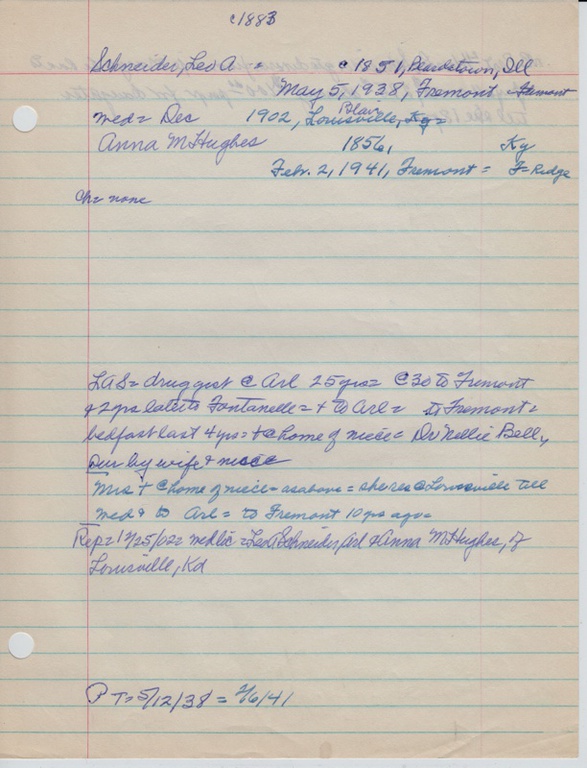 c1883
Schneider, Leo A = c 1851, Beardstown, Ill
May 5, 1938, Fremont = Fremont
med = Dec 1902, Louisville, Ky =
Blair
Anna M Hughes 1856, Ky
Feby. 2, 1941, Fremont = F= Ridge
ch = none
LAS = druggist @ Arl 25 yrs = @ 30 to Fremont
& 2 yrs later to Fontanelle = + to Arl = to Fremont =
bedfast last 4 yrs = + @ home of niece = Dr Nellie Bell,
Sur by wife & niece
Mrs + @ home of niece = as above = she res @ Louisville till
med & to Arl = to Fremont 10 yrs ago =
Rep = 12/25/02 = med lic = Leo A Schneider, Arl & Anna M Hughes, of
Louisville, Kd
P T = 5/12/38 = 2/6/41